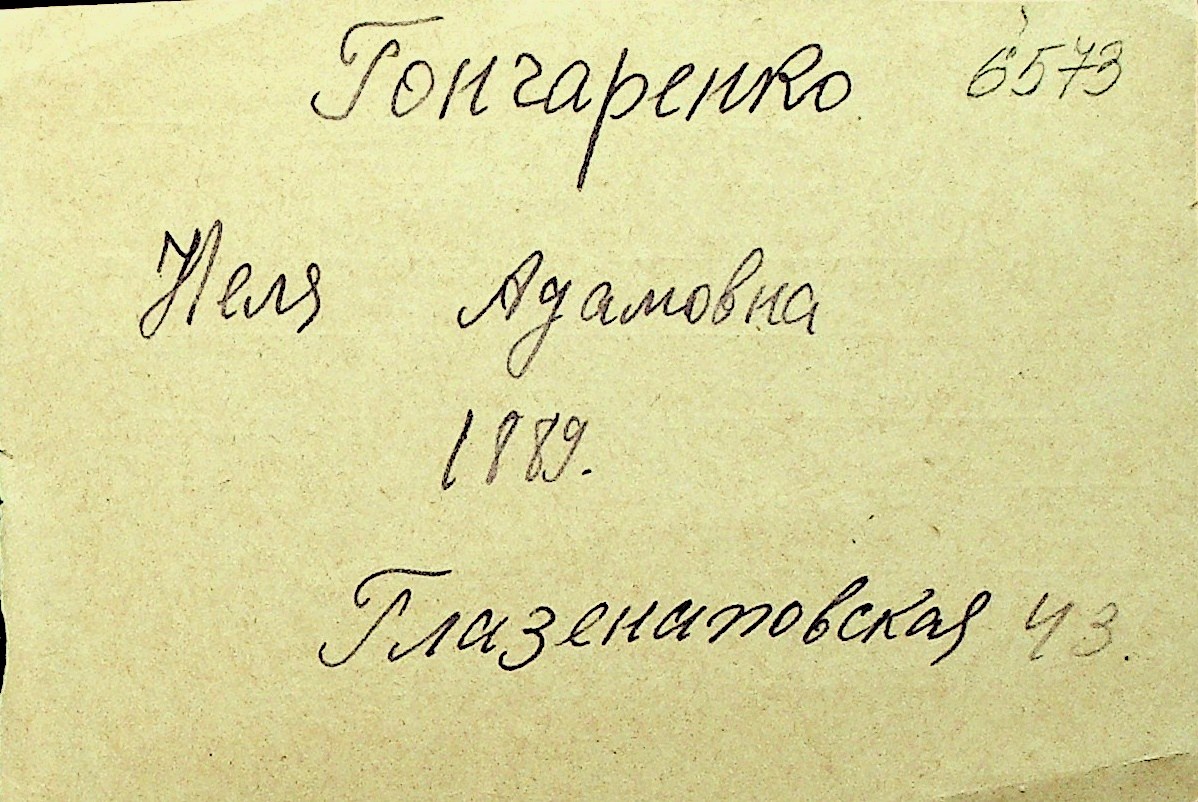 Гончаренко 6573
Неля Адамовна
1889.
Глазенаповская 43.